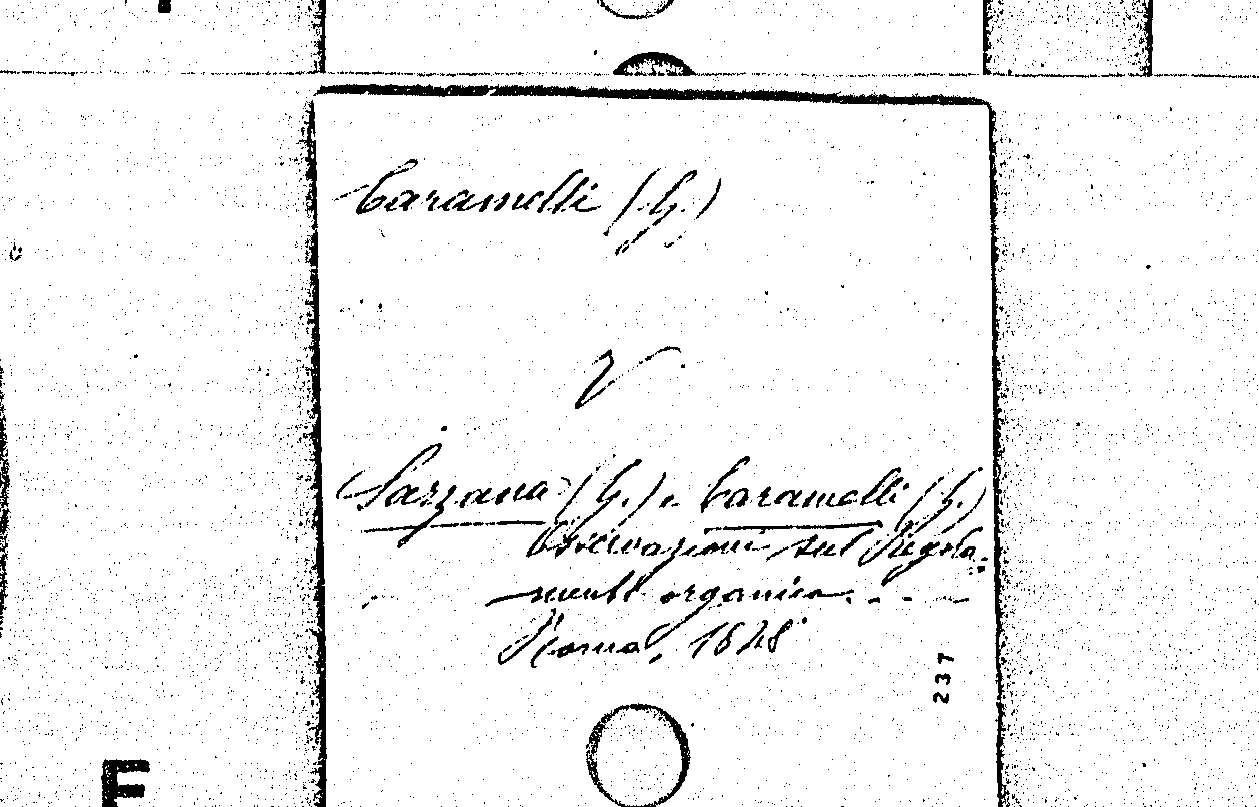 Caramelli (G.)
V
Sazzana (G.) e Caramelli (G.)
Osservazioni sul Regola-
mento organico. - - -
Roma, 1628
237
E